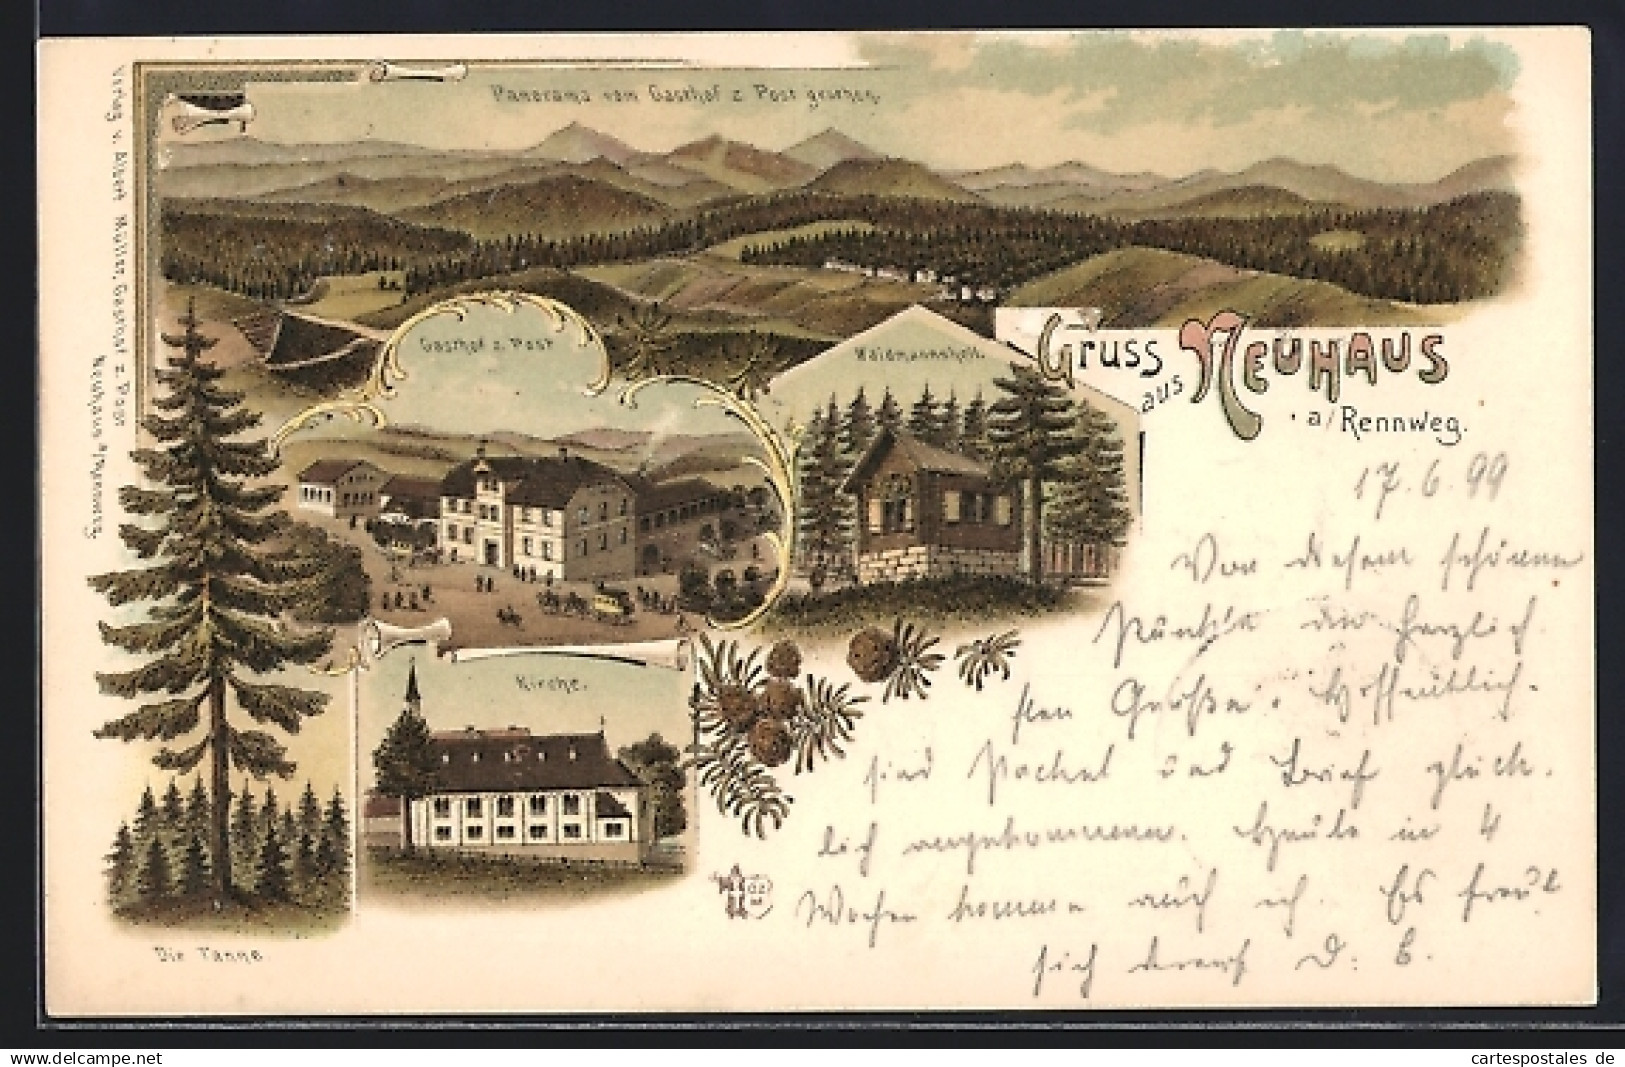 Panorama vom Gasthof z. Post gesehen.
Verlag v. Albert Müller, Gasthof z. Post
Neuhaus a/Rennweg.
Gasthof z. Post
Waidmannsheil.
Gruss
aus
NEUHAUS
a/Rennweg.
17.6.99
Von diesem schönen
Punkte die herzlich
sten Grüße. Hoffentlich
sind Packet und Brief glück-
lich angekommen. Heute in 4
Wochen komme auch ich. Es freut
sich drauf D. E.
Kirche.
Die Tanne.
delcampe.net
cartespostales de